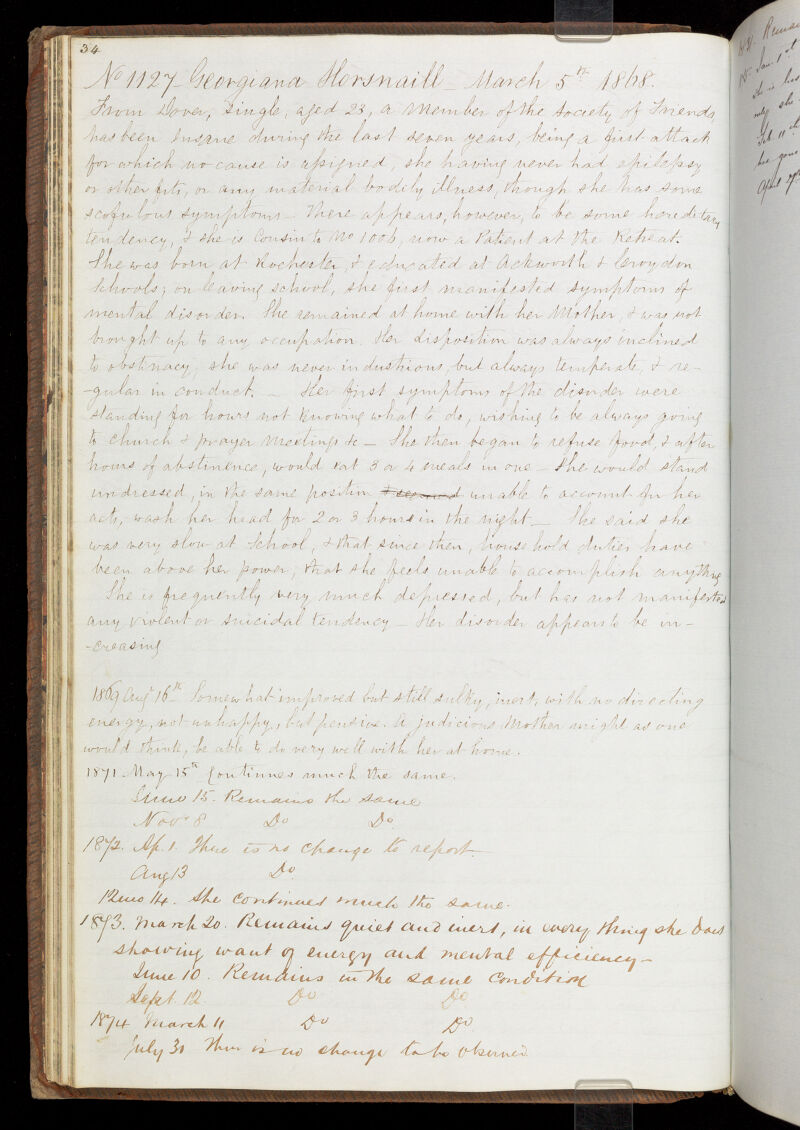 34
No 1127 Georgiana Horsnaill – March 5th 1868.
From Dover, Single, aged 23, a Member of the Society of Friends
has been Insane during the last seven years, being a first attack
for which no cause is assigned, she having never had epilepsy
or other fits, or any material bodily illness, though she has some
scofulous symptoms – There appears, however, to be some hereditary
tendency, & she is Cousin to No 1006, now a Patient at the Retreat.
She was born at Rochester, & educated at Ackworth & Croydon
Schools; on leaving school, she first manifested symptoms of
mental disorder. She remained at home with her Mother, & was not
brought up to any occupation. Her disposition was always inclined
to obstinacy, she was never industrious, but always temperate, & re-
-gular in conduct. – Her first symptoms of the disorder were
standing for hours not knowing what to do, wishing to be always going
to church & prayer meetings &c – She then began to refuse food, & after
hours of abstinence, would eat 3 or 4 meals in one – She would stand
undressed, in the same position unable to account for her
acts, wash her head for 2 or 3 hours in the night – She said she
was very slow at School, & that since then, household duties have
been above her power; that she feels unable to accomplish anything
She is frequently very much depressed, but has not manifested
any violent or suicidal tendency – Her disorder appears to be in-
-creasing
1869 Augt 16th Somewhat improved but still sulky, inert, with no directing
energy, not unhappy, but pensive. A judicious Mother might as one
would think, be able to do very well with her at home.
1871 May 15th Continues much the same.
June 15. Remains the same
Novr 8 Do Do
1872. Ap. 1. There is no change to report.
Aug 13 Do
12mo 14. She continues much the same.
1873. March 20. Remains quiet and inert, in every thing she does
showing want of energy and mental efficiency –
June 10. Remains in the same condition
Sept 12 Do Do
1874 March 11 Do Do
July 30 There is no change to be observed